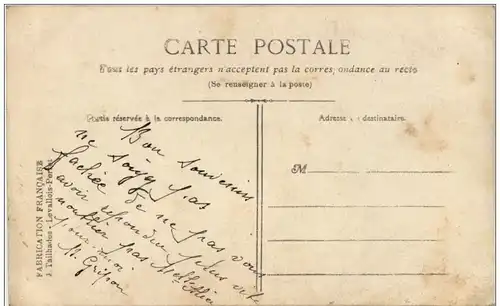 CARTE POSTALE
Tous les pays étrangers n'acceptent pas la correspondance au recto
(Se renseigner à la poste)
Partie réservée à la correspondance.
Adresse du destinataire.
M
FABRICATION FRANÇAISE
J. Tailhades - Levallois-Perret
Bon souvenir
ne soyez pas
fachée de ne pas vous
avoir répondu plus vite
pas Melle
pour moi
M.